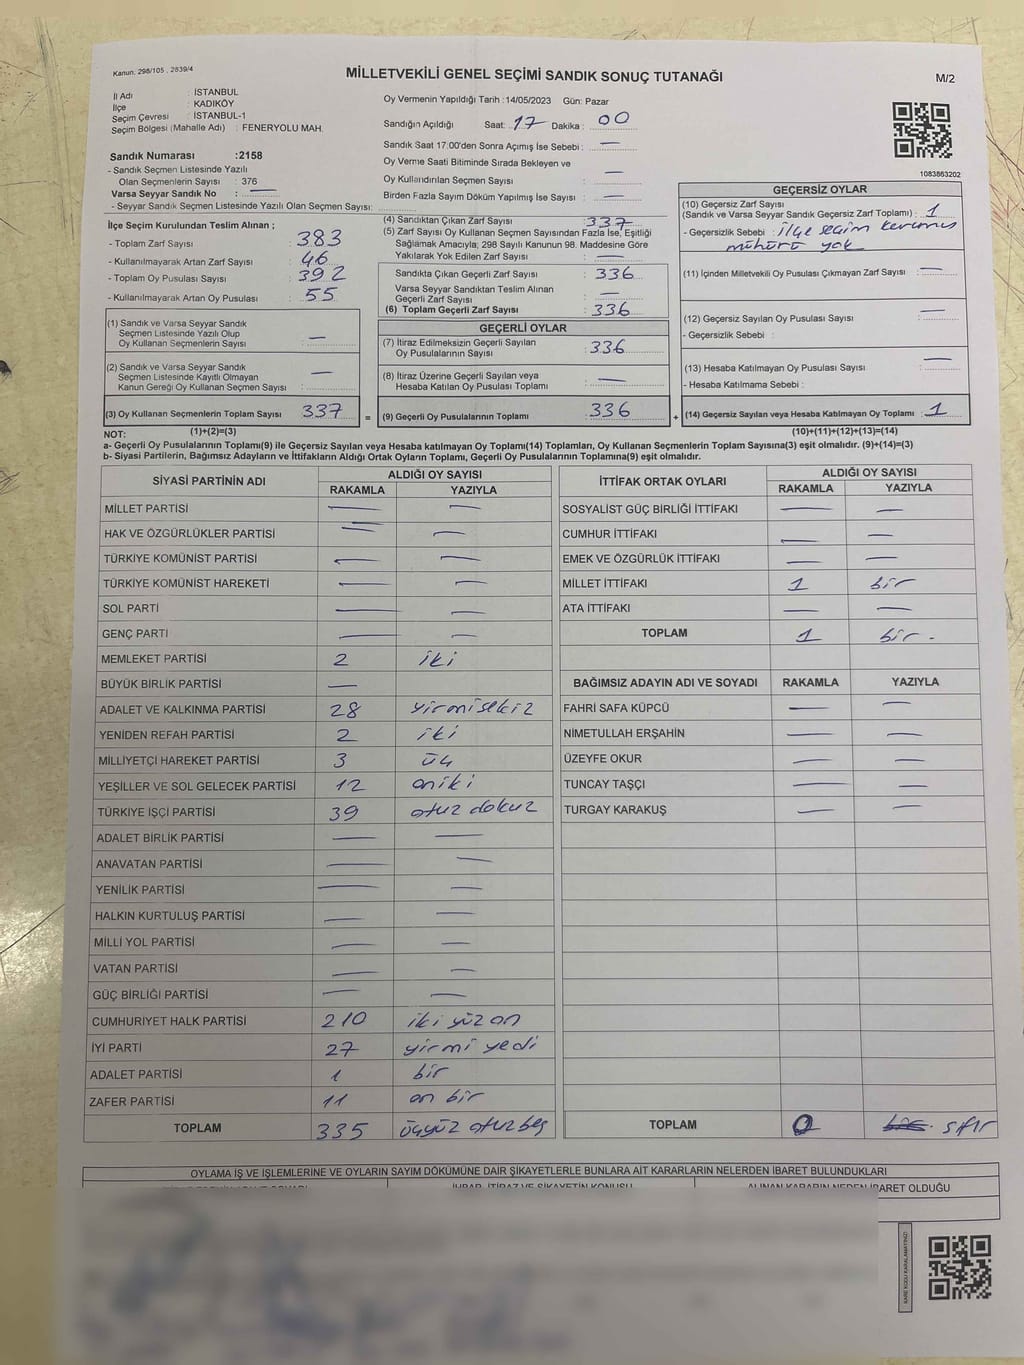 Kanun: 298/105 , 2839/4
MİLLETVEKİLİ GENEL SEÇİMİ SANDIK SONUÇ TUTANAĞI
M/2
İl Adı : İSTANBUL
İlçe : KADIKÖY
Seçim Çevresi : İSTANBUL-1
Seçim Bölgesi (Mahalle Adı) : FENERYOLU MAH.
Oy Vermenin Yapıldığı Tarih : 14/05/2023 Gün: Pazar
Sandığın Açıldığı Saat: 17 Dakika : 00
Sandık Saat 17:00'den Sonra Açımış İse Sebebi : —
Oy Verme Saati Bitiminde Sırada Bekleyen ve
Oy Kullandırılan Seçmen Sayısı : —
Birden Fazla Sayım Döküm Yapılmış İse Sayısı : —
1083863202
Sandık Numarası :2158
- Sandık Seçmen Listesinde Yazılı
Olan Seçmenlerin Sayısı : 376
Varsa Seyyar Sandık No : —
- Seyyar Sandık Seçmen Listesinde Yazılı Olan Seçmen Sayısı:
İlçe Seçim Kurulundan Teslim Alınan ;
- Toplam Zarf Sayısı : 383
- Kullanılmayarak Artan Zarf Sayısı : 46
- Toplam Oy Pusulası Sayısı : 392
- Kullanılmayarak Artan Oy Pusulası : 55
(1) Sandık ve Varsa Seyyar Sandık
Seçmen Listesinde Yazılı Olup
Oy Kullanan Seçmenlerin Sayısı : —
(2) Sandık ve Varsa Seyyar Sandık
Seçmen Listesinde Kayıtlı Olmayan
Kanun Gereği Oy Kullanan Seçmen Sayısı : —
(3) Oy Kullanan Seçmenlerin Toplam Sayısı : 337 =
(4) Sandıktan Çıkan Zarf Sayısı : 337
(5) Zarf Sayısı Oy Kullanan Seçmen Sayısından Fazla İse, Eşitliği
Sağlamak Amacıyla; 298 Sayılı Kanunun 98. Maddesine Göre
Yakılarak Yok Edilen Zarf Sayısı : —
Sandıkta Çıkan Geçerli Zarf Sayısı : 336
Varsa Seyyar Sandıktan Teslim Alınan
Geçerli Zarf Sayısı : —
(6) Toplam Geçerli Zarf Sayısı : 336
GEÇERLİ OYLAR
(7) İtiraz Edilmeksizin Geçerli Sayılan
Oy Pusulalarının Sayısı : 336
(8) İtiraz Üzerine Geçerli Sayılan veya
Hesaba Katılan Oy Pusulası Toplamı : —
(9) Geçerli Oy Pusulalarının Toplamı : 336 +
GEÇERSİZ OYLAR
(10) Geçersiz Zarf Sayısı
(Sandık ve Varsa Seyyar Sandık Geçersiz Zarf Toplamı) : 1
- Geçersizlik Sebebi : ilçe seçim
mühürü yok
(11) İçinden Milletvekili Oy Pusulası Çıkmayan Zarf Sayısı : —
(12) Geçersiz Sayılan Oy Pusulası Sayısı : —
- Geçersizlik Sebebi :
(13) Hesaba Katılmayan Oy Pusulası Sayısı : —
- Hesaba Katılmama Sebebi :
(14) Geçersiz Sayılan veya Hesaba Katılmayan Oy Toplamı : 1
NOT: (1)+(2)=(3) (10)+(11)+(12)+(13)=(14)
a- Geçerli Oy Pusulalarının Toplamı(9) ile Geçersiz Sayılan veya Hesaba katılmayan Oy Toplamı(14) Toplamları, Oy Kullanan Seçmenlerin Toplam Sayısına(3) eşit olmalıdır. (9)+(14)=(3)
b- Siyasi Partilerin, Bağımsız Adayların ve İttifakların Aldığı Ortak Oyların Toplamı, Geçerli Oy Pusulalarının Toplamına(9) eşit olmalıdır.
SİYASİ PARTİNİN ADI ALDIĞI OY SAYISI
RAKAMLA YAZIYLA
MİLLET PARTİSİ — —
HAK VE ÖZGÜRLÜKLER PARTİSİ — —
TÜRKİYE KOMÜNİST PARTİSİ — —
TÜRKİYE KOMÜNİST HAREKETİ — —
SOL PARTİ — —
GENÇ PARTİ — —
MEMLEKET PARTİSİ 2 iki
BÜYÜK BİRLİK PARTİSİ —
ADALET VE KALKINMA PARTİSİ 28 yirmisekiz
YENİDEN REFAH PARTİSİ 2 iki
MİLLİYETÇİ HAREKET PARTİSİ 3 üç
YEŞİLLER VE SOL GELECEK PARTİSİ 12 oniki
TÜRKİYE İŞÇİ PARTİSİ 39 otuz dokuz
ADALET BİRLİK PARTİSİ — —
ANAVATAN PARTİSİ — —
YENİLİK PARTİSİ — —
HALKIN KURTULUŞ PARTİSİ — —
MİLLİ YOL PARTİSİ — —
VATAN PARTİSİ — —
GÜÇ BİRLİĞİ PARTİSİ — —
CUMHURİYET HALK PARTİSİ 210 iki yüz on
İYİ PARTİ 27 yirmi yedi
ADALET PARTİSİ 1 bir
ZAFER PARTİSİ 11 on bir
TOPLAM 335 üçyüz otuz beş
İTTİFAK ORTAK OYLARI ALDIĞI OY SAYISI
RAKAMLA YAZIYLA
SOSYALİST GÜÇ BİRLİĞİ İTTİFAKI — —
CUMHUR İTTİFAKI — —
EMEK VE ÖZGÜRLÜK İTTİFAKI — —
MİLLET İTTİFAKI 1 bir
ATA İTTİFAKI — —
TOPLAM 1 bir -
BAĞIMSIZ ADAYIN ADI VE SOYADI RAKAMLA YAZIYLA
FAHRİ SAFA KÜPCÜ — —
NİMETULLAH ERŞAHİN — —
ÜZEYFE OKUR — —
TUNCAY TAŞÇI — —
TURGAY KARAKUŞ — —
TOPLAM 0 sıfır
OYLAMA İŞ VE İŞLEMLERİNE VE OYLARIN SAYIM DÖKÜMÜNE DAİR ŞİKAYETLERLE BUNLARA AİT KARARLARIN NELERDEN İBARET BULUNDUKLARI
İHBAR, İTİRAZ VE ŞİKAYETİN KONUSU ALINAN KARARIN NEDEN İBARET OLDUĞU
KARE KODU KARALAMAYINIZ!